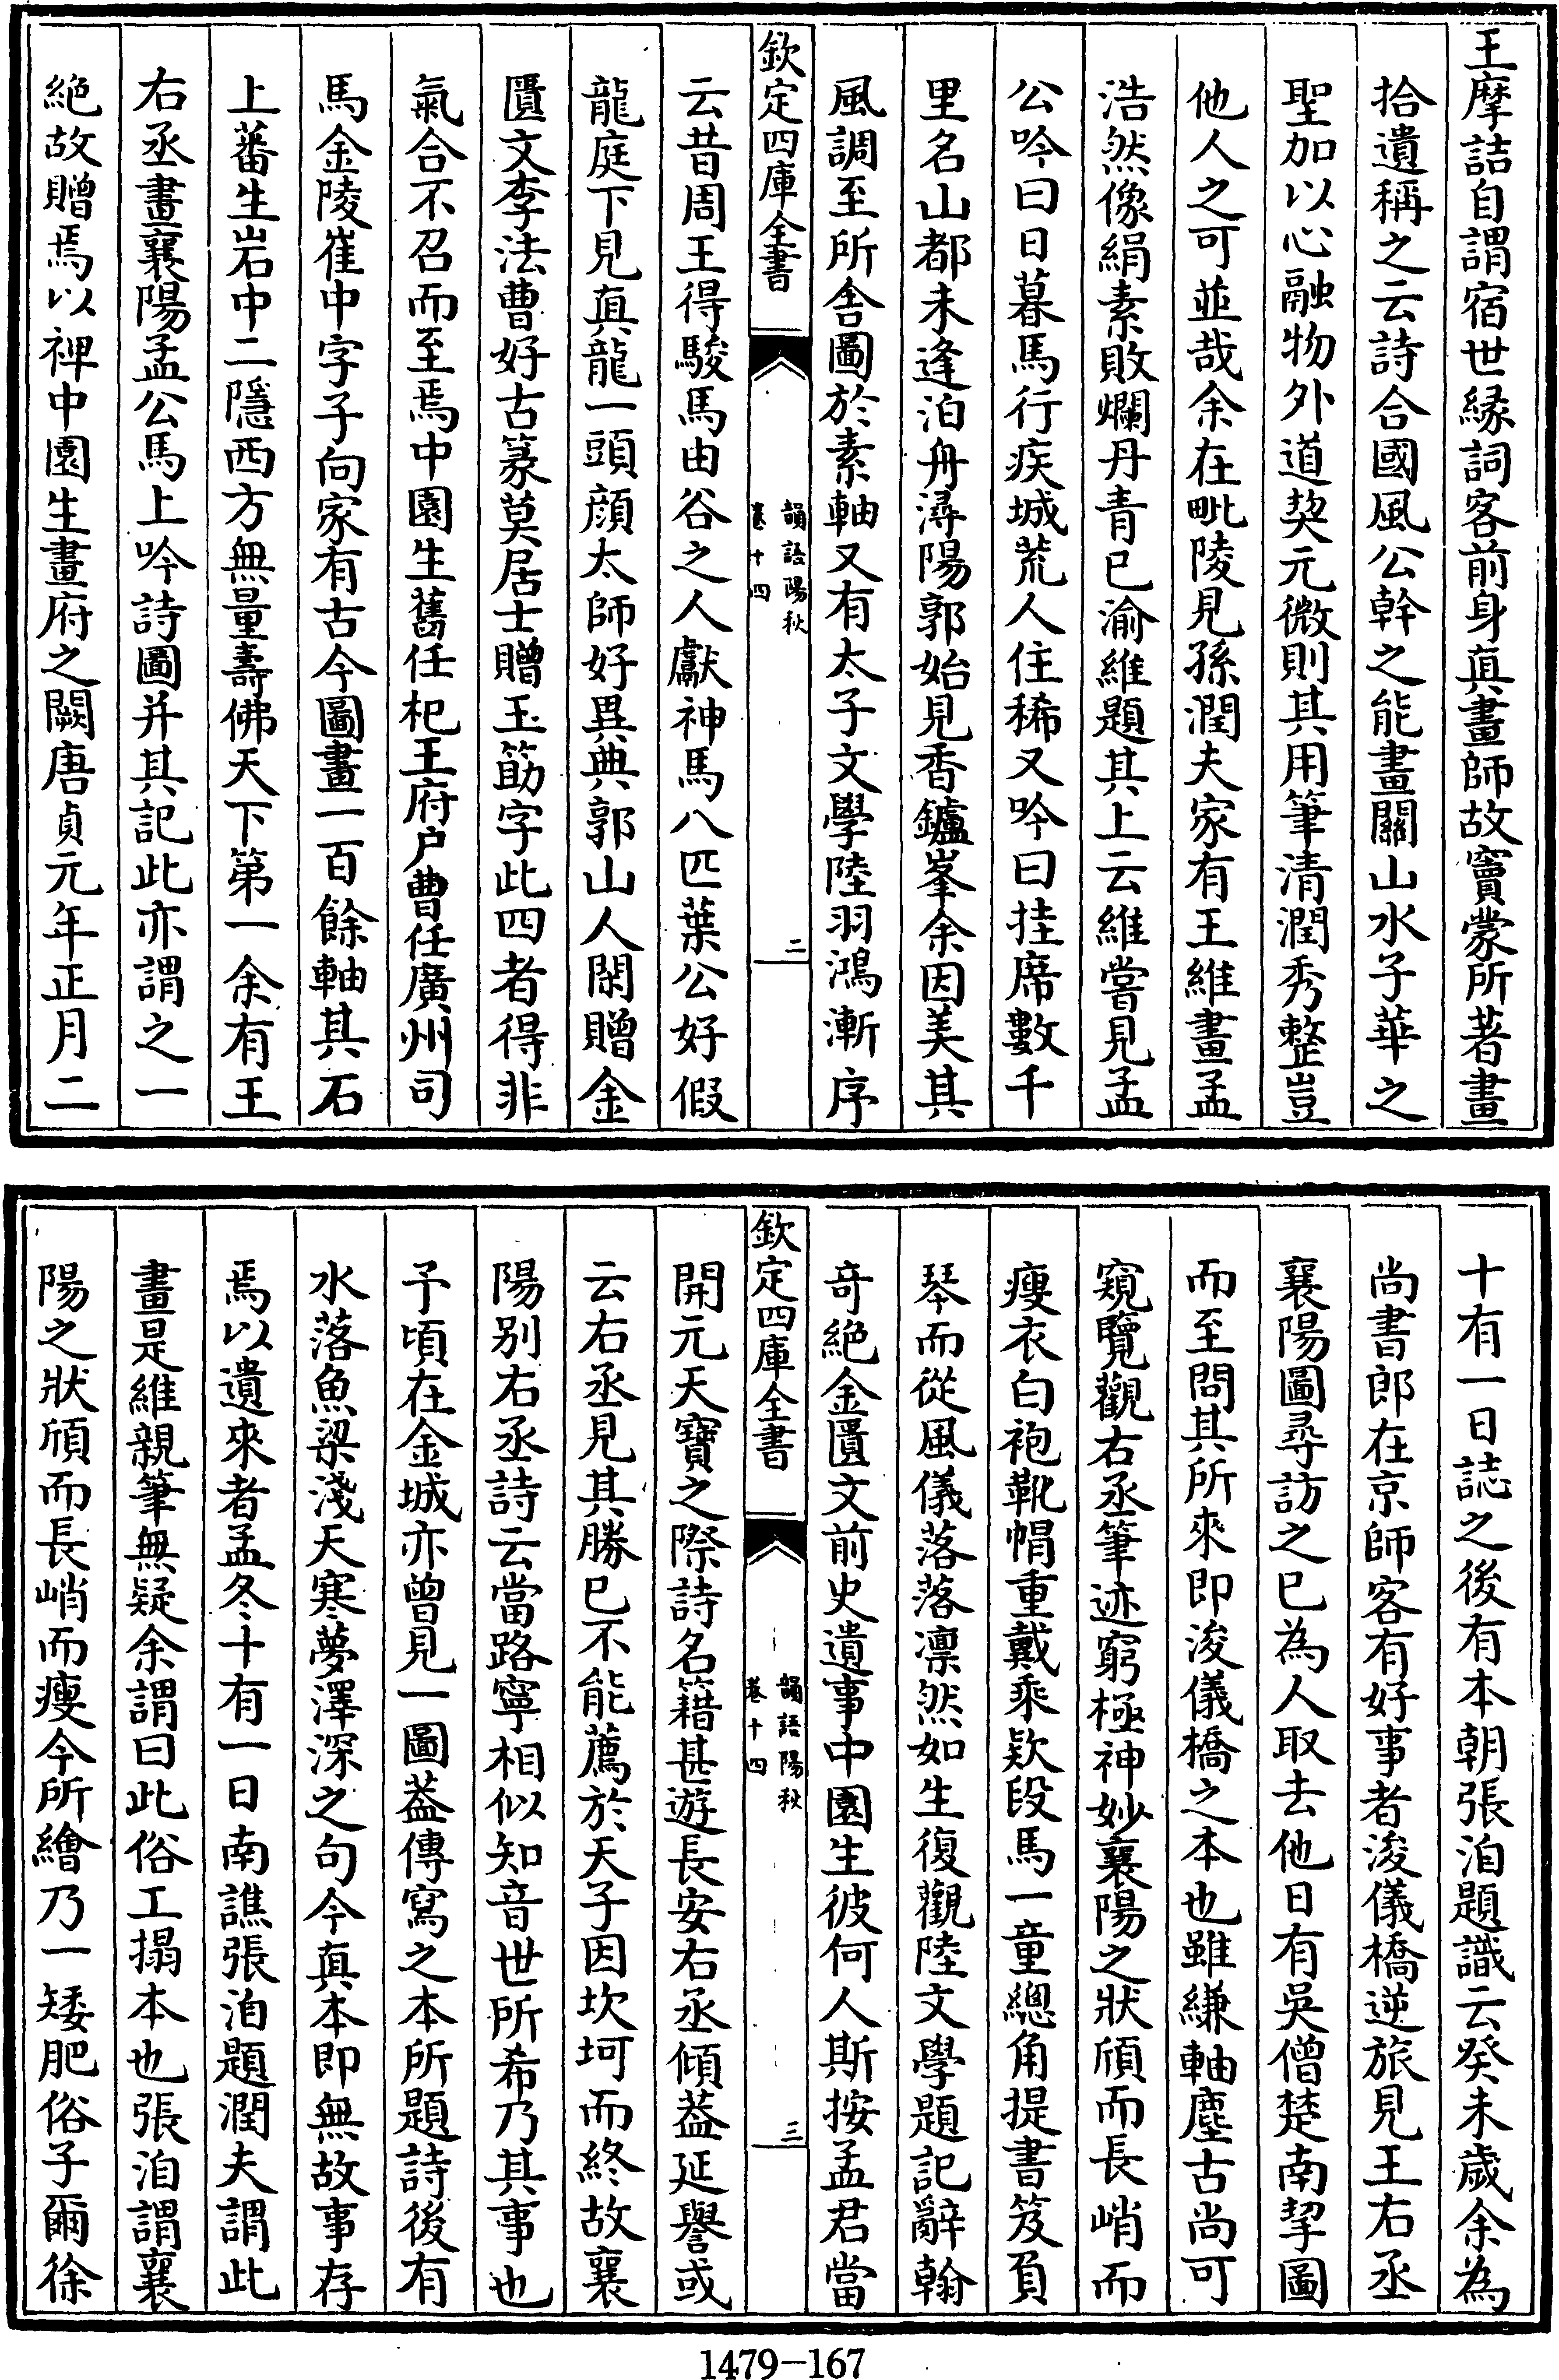 王摩詰自謂宿世縁詞客前身真畫師故竇蒙所著畫
拾遺稱之云詩合國風公幹之能畫關山水子華之
聖加以心融物外道契元微則其用筆清潤秀整豈
他人之可並哉余在毗陵見孫潤夫家有王維畫孟
浩然像絹素敗爛丹青已渝維題其上云維嘗見孟
公吟曰日暮馬行疾城荒人住稀又吟曰挂席數千
里名山都未逢泊舟潯陽郭始見香鑪峯余因美其
風調至所舎圖於素軸又有太子文學陸羽鴻漸序
欽定四庫全書
韻語陽秋
卷十四
二
云昔周王得駿馬由谷之人獻神馬八匹葉公好假
龍庭下見真龍一頭顔太師好異典郭山人閑贈金
匱文李法曹好古篆莫居士贈玉筯字此四者得非
氣合不召而至焉中園生舊任杞王府户曹任廣州司
馬金陵崔中字子向家有古今圖畫一百餘軸其石
上蕃生岩中二隱西方無量壽佛天下第一余有王
右丞畫襄陽孟公馬上吟詩圖并其記此亦謂之一
絶故贈焉以裨中園生畫府之闕唐貞元年正月二
十有一日誌之後有本朝張洎題識云癸未歲余為
尚書郎在京師客有好事者浚儀橋逆旅見王右丞
襄陽圖尋訪之已為人取去他日有吳僧楚南挈圖
而至問其所來即浚儀橋之本也雖縑軸塵古尚可
窺覽觀右丞筆迹窮極神妙襄陽之狀頎而長峭而
瘦衣白袍靴帽重戴乘欵段馬一童總角提書笈負
琴而從風儀落落凛然如生復觀陸文學題記辭翰
奇絶金匱文前史遺事中園生彼何人斯按孟君當
欽定四庫全書
韻語陽秋
卷十四
三
開元天寶之際詩名籍甚遊長安右丞傾葢延譽或
云右丞見其勝已不能薦於天子因坎坷而終故襄
陽别右丞詩云當路寧相似知音世所希乃其事也
予頃在金城亦曾見一圖葢傳寫之本所題詩後有
水落魚梁淺天寒夢澤深之句今真本即無故事存
焉以遺來者孟冬十有一日南譙張洎題潤夫謂此
畫是維親筆無疑余謂曰此俗工搨本也張洎謂襄
陽之狀頎而長峭而瘦今所繪乃一矮肥俗子爾徐
1479-167